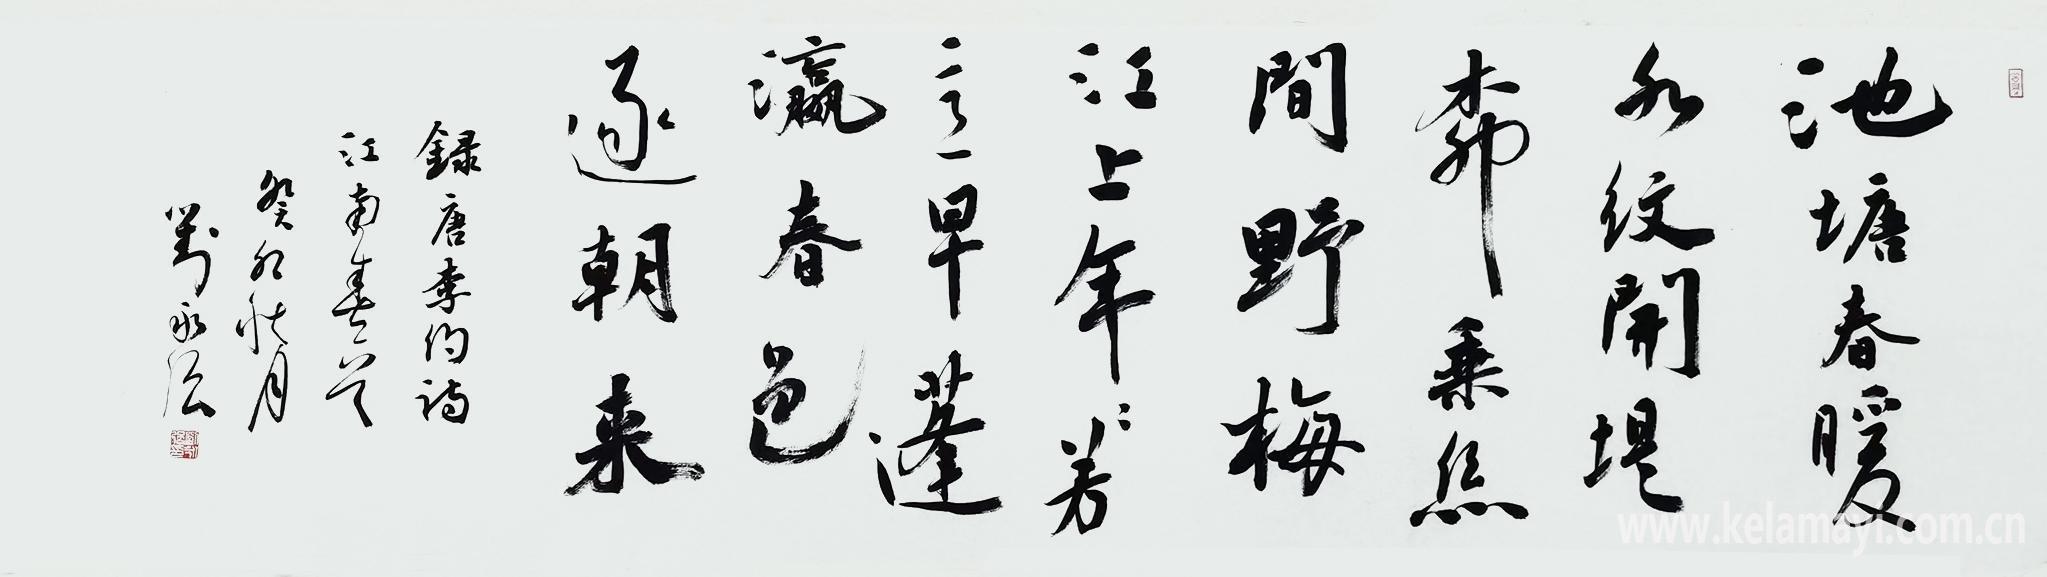 池塘春暖
水紋開堤
桺垂絲
間野梅
江上年年芳
意早蓬
瀛春色
逐朝来
録唐李約詩
江南春一首
癸卯秋月
劉永
www.kelamayi.com.cn